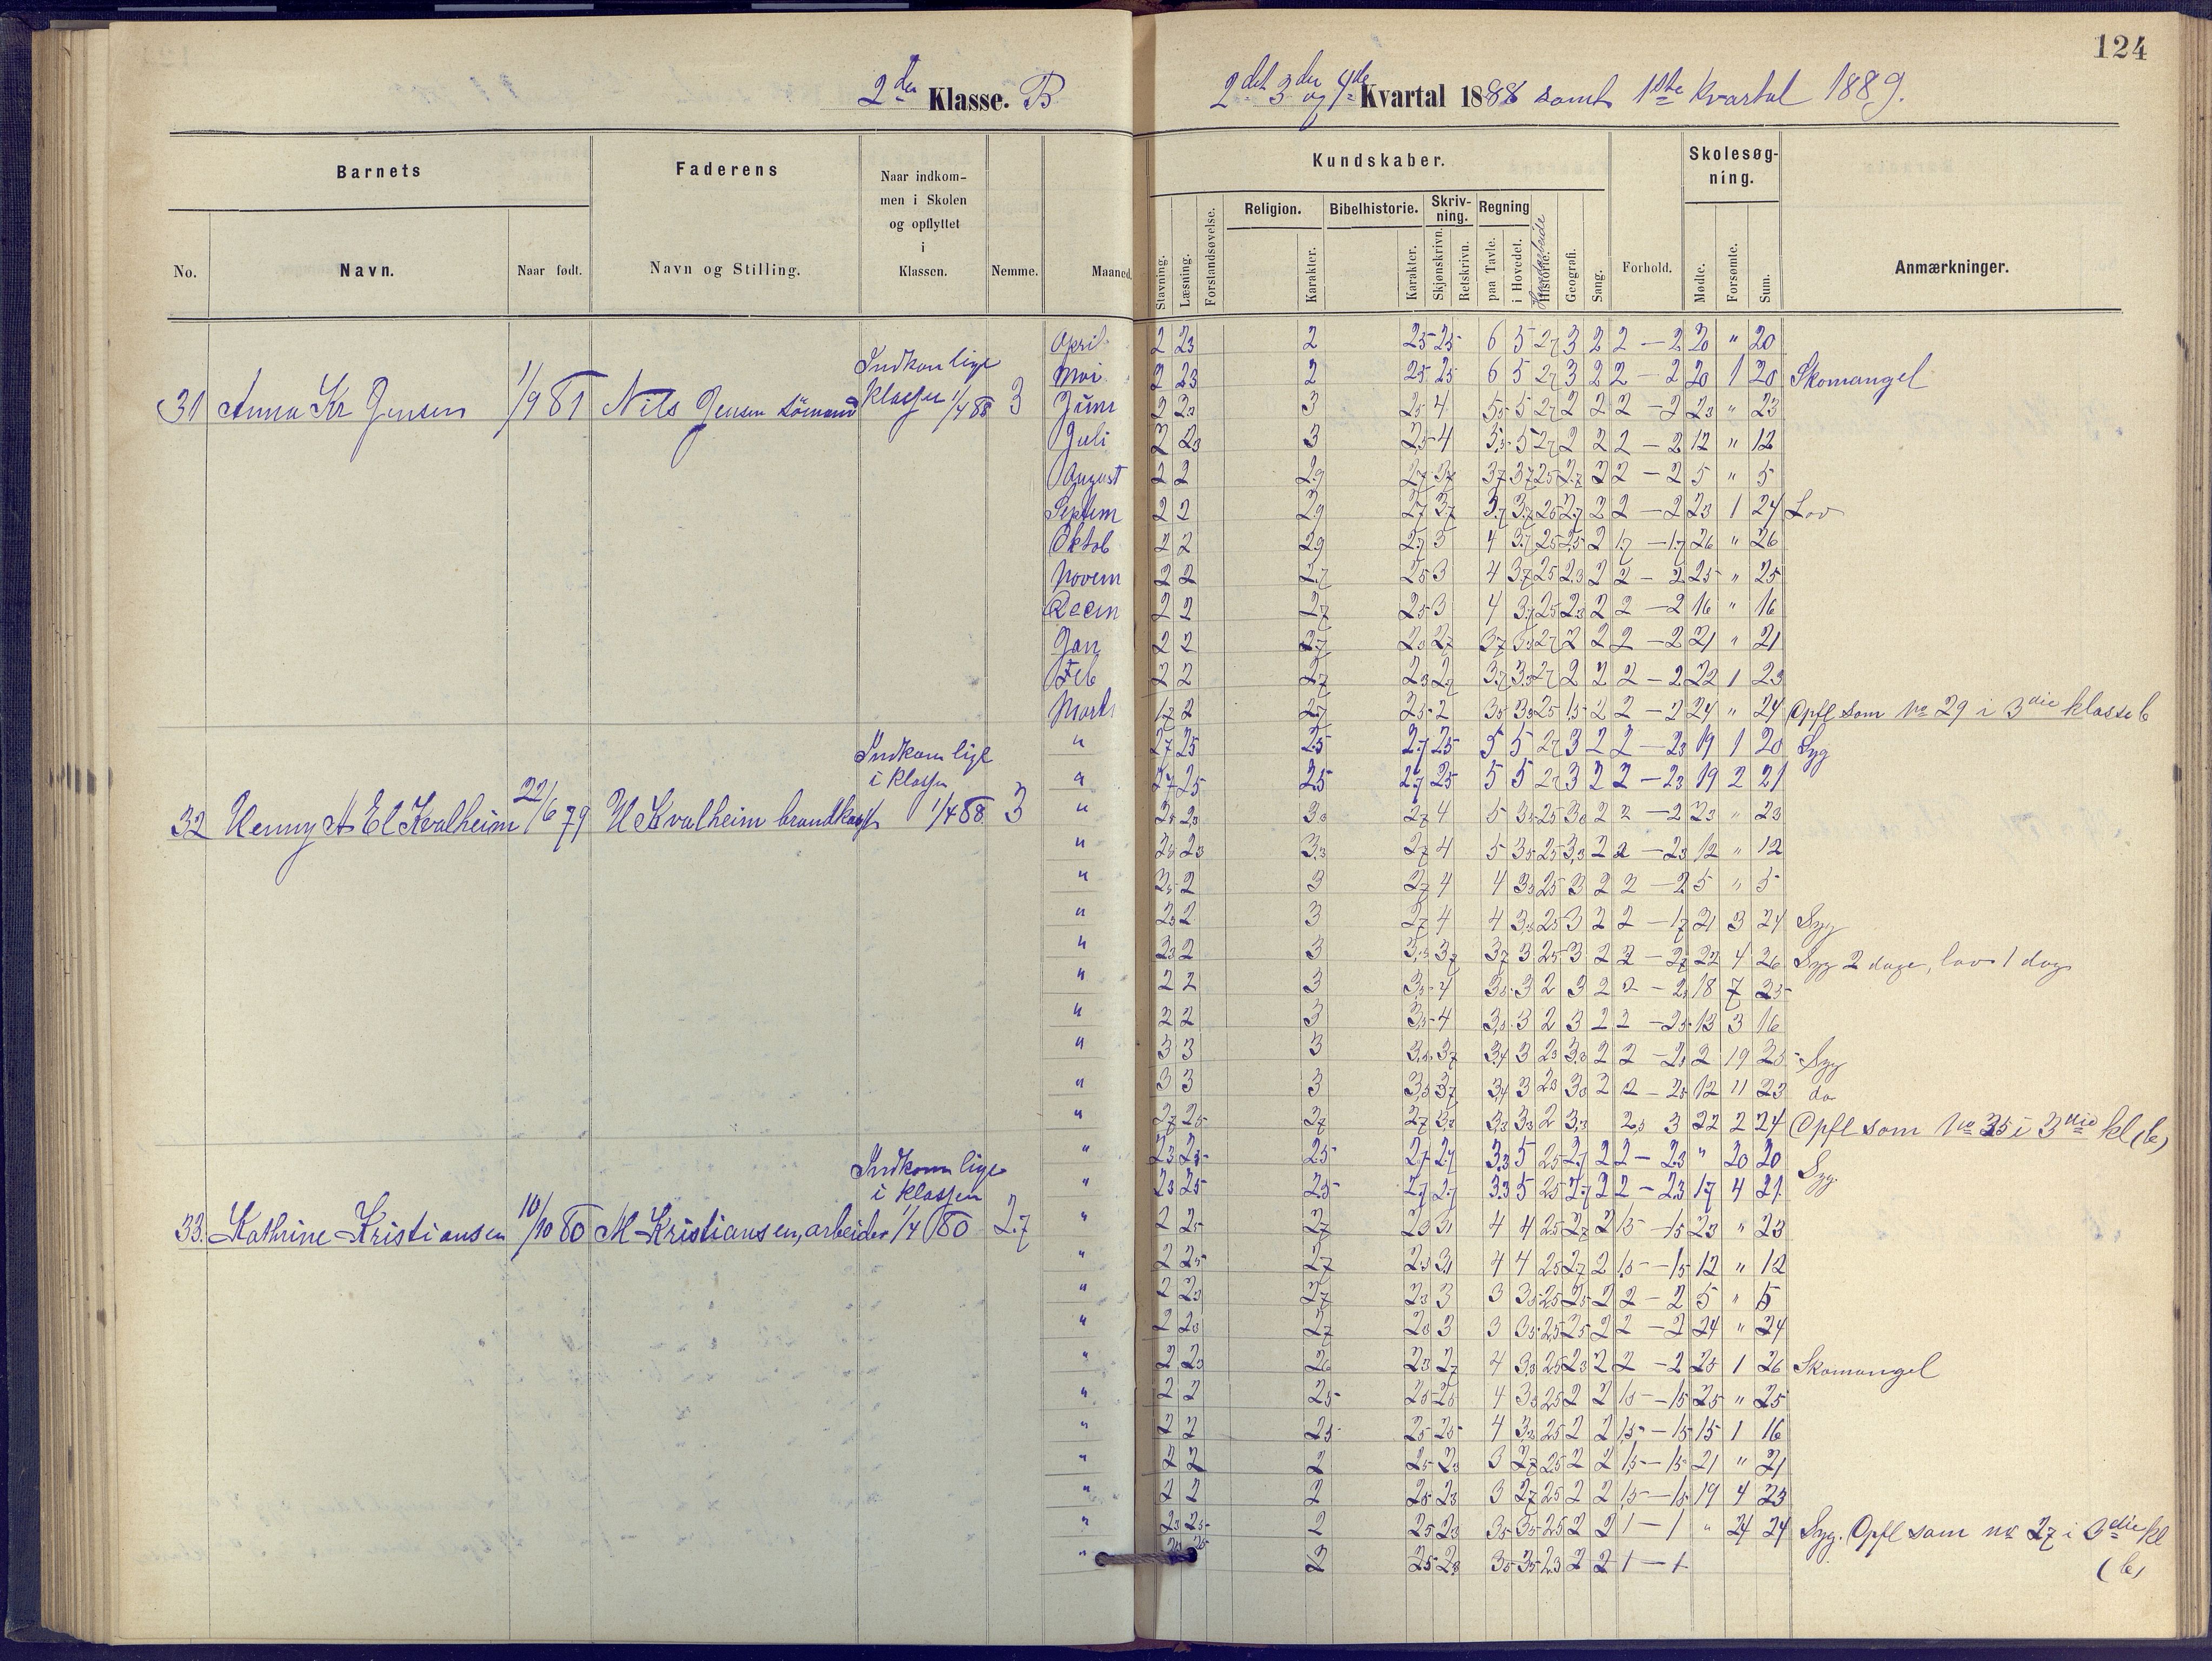 124
2den Klasse. B
2det 3die og 4de Kvartal 1888 samt 1ste Kvartal 1889.
Barnets
Faderens
Naar indkom-
men i Skolen
og opflyttet
i
Klassen.
Kundskaber.
Skolesøg-
ning.
Religion.
Bibelhistorie.
Skriv-
ning.
Regning
No.
Navn.
Naar født.
Navn og Stilling.
Nemme.
Maaned.
Stavning.
Læsning.
Forstandsøvelse.
Karakter.
Karakter.
Skjønskrivn.
Retskrivn.
paa Tavle.
i Hovedet.
Historie.
Haandarbeide
Geografi.
Sang.
Forhold.
Mødte.
Forsømte.
Sum.
Anmærkninger.
April 2 23 2 25 25 6 5 27 3 2 2 — 2 20 " 20
Indkom lige
Mai 2 23 2 25 25 6 5 27 3 2 2 — 2 20 1 20 Skomangel
31 Anna Kr Jensen 1/9 81 Nils Jensen sömand klassen 1/4 88 3
Juni 2 23 3 25 4 5 27 2 2 2 — 2 23 " 23
Juli 2 23 3 25 4 5 27 2 2 2 — 2 12 " 12
August 2 2 29 27 37 37 37 25 27 2 2 — 2 5 " 5
Septem 2 2 29 27 37 37 37 25 27 2 2 — 2 23 1 24 Lov
Oktob 2 2 29 27 3 4 37 25 25 2 17 — 17 26 " 26
Novem 2 2 27 25 3 4 37 25 23 2 2 — 2 25 " 25
Decm 2 2 27 25 3 4 37 25 23 2 2 — 2 16 " 16
Jan 2 2 27 23 27 37 27 2 2 2 — 2 21 " 21
Feb 2 2 27 23 27 27 2 2 2 — 2 22 1 23
Marts 17 2 27 25 2 35 33 25 15 2 2 — 2 24 " 24 Opfl som No 29 i 3die klasse b
Indkom lige
i klassen
" 27 25 25 27 25 5 5 27 3 2 2 — 23 19 1 20 Syg
" 27 25 25 27 25 5 5 27 3 2 2 — 23 19 2 21
32 Kvalheim 22/6 79 Kvalheim 1/4 88 3
" 23 27 4 5 35 25 33 2 2 — 2 23 " 23
" 23 33 27 4 5 35 25 33 2 2 — 23 12 " 12
" 2 3 27 4 4 33 25 3 2 2 — 2 5 " 5
" 23 2 3 27 4 4 33 25 3 2 2 — 17 21 3 24 Syg
" 23 2 3 37 37 3 25 3 2 2 — 27 22 4 26 Syg 2 dage, lov 1 dag
" 2 2 3 4 3 2 3 2 2 — 18 7 25
" 2 2 3 4 3 2 3 2 2 — 25 13 3 16
" 3 3 3 37 34 3 23 33 2 2 — 2 19 Syg
" 3 3 3 37 34 3 23 33 2 2 — 25 12 11 23 do
" 27 25 27 27 33 33 33 2 33 3 22 2 24 Opfl som No 35 i 3die kl (b)
Indkom lige
i klassen
" 23 25 25 27 27 33 5 25 27 2 2 — 23 " 20 20 Syg.
" 23 25 25 27 27 33 5 25 27 2 2 — 23 17 4 21
33. Kathrine Kristiansen 10/10 80 M Kristiansen, arbeider 1/4 80 2.7
" 2 25 27 23 31 4 4 25 27 2 15 — 15 23 " 23
" 2 25 27 23 31 4 4 25 27 2 15 — 15 12 " 12
" 2 23 27 23 3 3 33 25 25 2 2 — 2 5 " 5
" 2 23 27 23 3 3 33 25 25 2 2 — 2 24 " 24
" 2 23 26 23 27 4 33 25 23 2 2 — 2 25 1 26 Skomangel
" 2 2 25 25 25 4 33 25 2 2 15 — 15 25 " 25
" 2 2 25 25 25 4 33 25 2 2 15 — 15 15 1 16
" 2 2 2 25 23 3 27 25 2 2 15 — 15 21 " 21
" 2 2 2 25 23 3 27 25 2 2 15 — 15 19 4 23
" 23 25 2 25 23 35 35 25 2 2 1 — 1 " 24 24 Syg. Opfl som no 27 i 3die kl
" 2 25 23 35 35 23 2 2 1 — 1 (b)